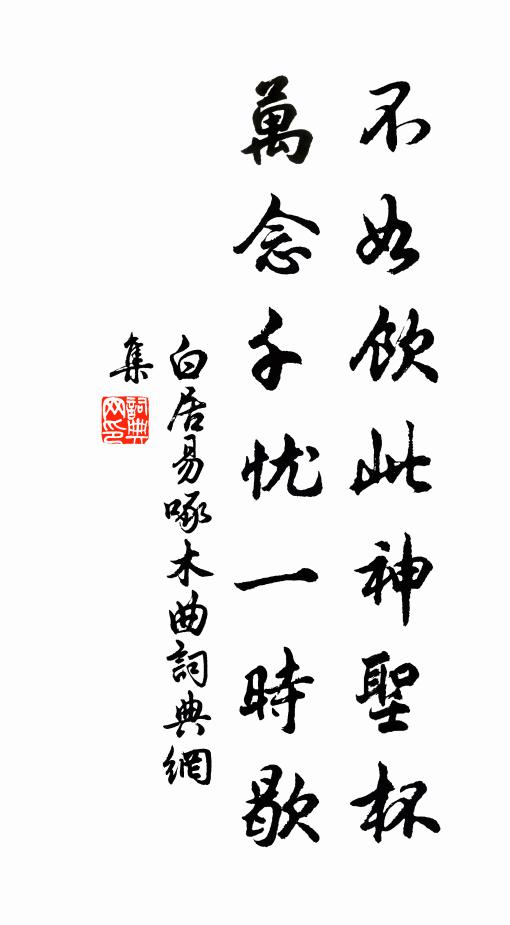 不如飲此神聖杯
萬念千忧一時歇
白居易啄木曲詞典網
集
詞典
网印